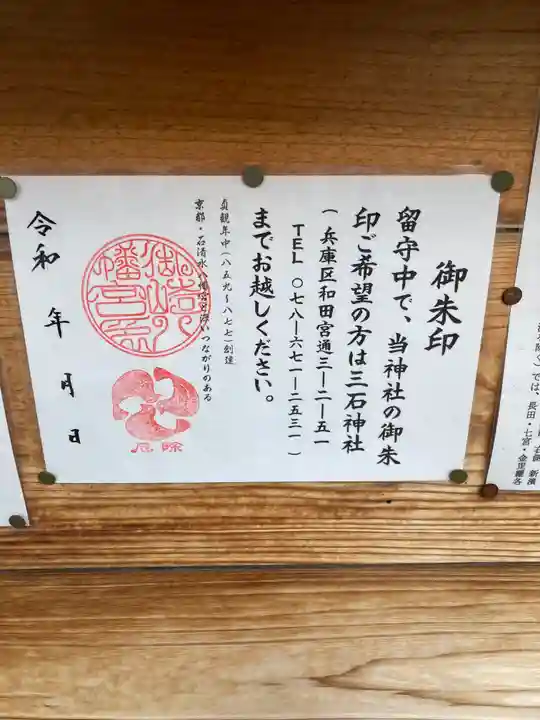 御朱印
留守中で、当神社の御朱
印ご希望の方は三石神社
(兵庫区和田宮通三ー二ー五一
TEL 〇七八ー六七一ー二五三一)
までお越しください。
貞観年中(八五九〜八七七)創建
京都・石清水八幡宮と深いつながりのある
御崎八
幡宮
厄除
令和 年 月 日
では、長田・七宮・金里羅各